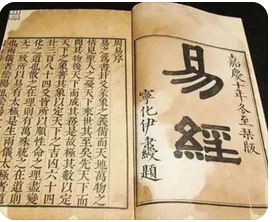 嘉慶十年冬至栞版
易經
寧化伊秉綬題
周易序
易之為書卦爻彖象之義備而天地萬物之
情見聖人之憂天下來世其至矣先天下
而開其物後天下而成其務是故極其數以定
天下之象著其象以定天下之吉凶六十四
卦三百八十四爻皆所以順性命之理盡變
化之道也散之在理則有萬殊統之在道則
無二致所以易有太極是生兩儀太極者道